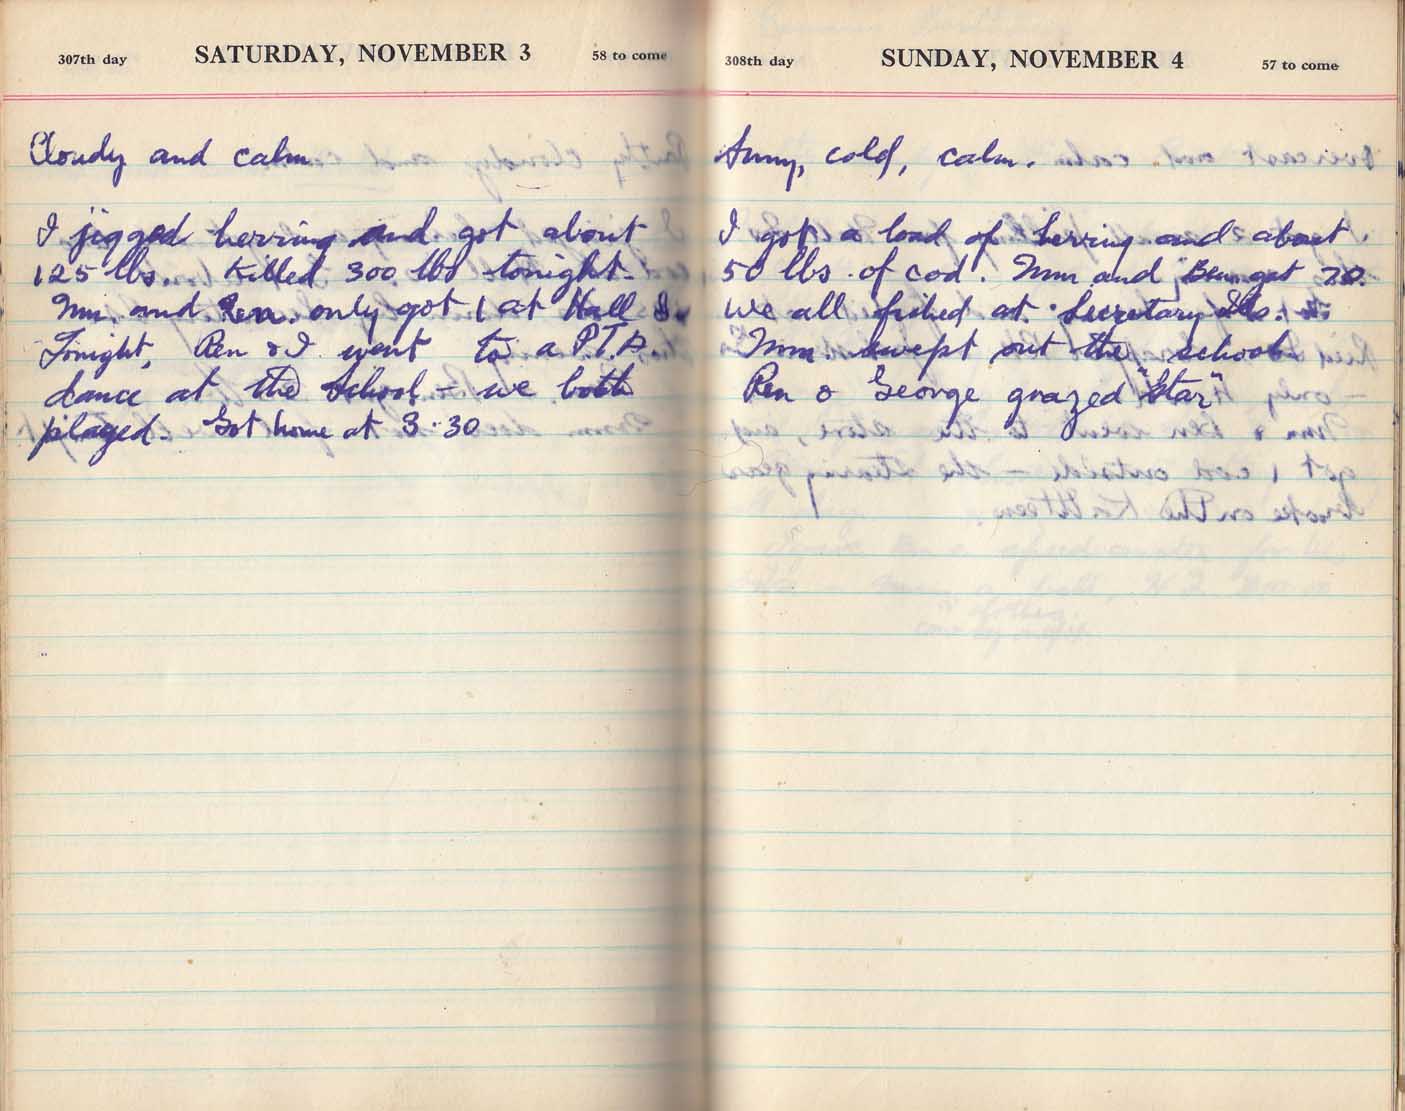 307th day SATURDAY, NOVEMBER 3 58 to come
Cloudy and calm
I jigged herring and got about
125 lbs. Killed 300 lbs tonight.
Mm. and Pen. only got 1 at Hall
Tonight, Pen & I went to a P.T.A.
dance at the School - we both
played. Got home at 3.30
308th day SUNDAY, NOVEMBER 4 57 to come
Sunny, cold, calm.
I got a load of herring and about
50 lbs. of cod. Mm and got 20.
We all fished at Secretary Is.
Mm swept out the school
Pen & George guazed "Star"